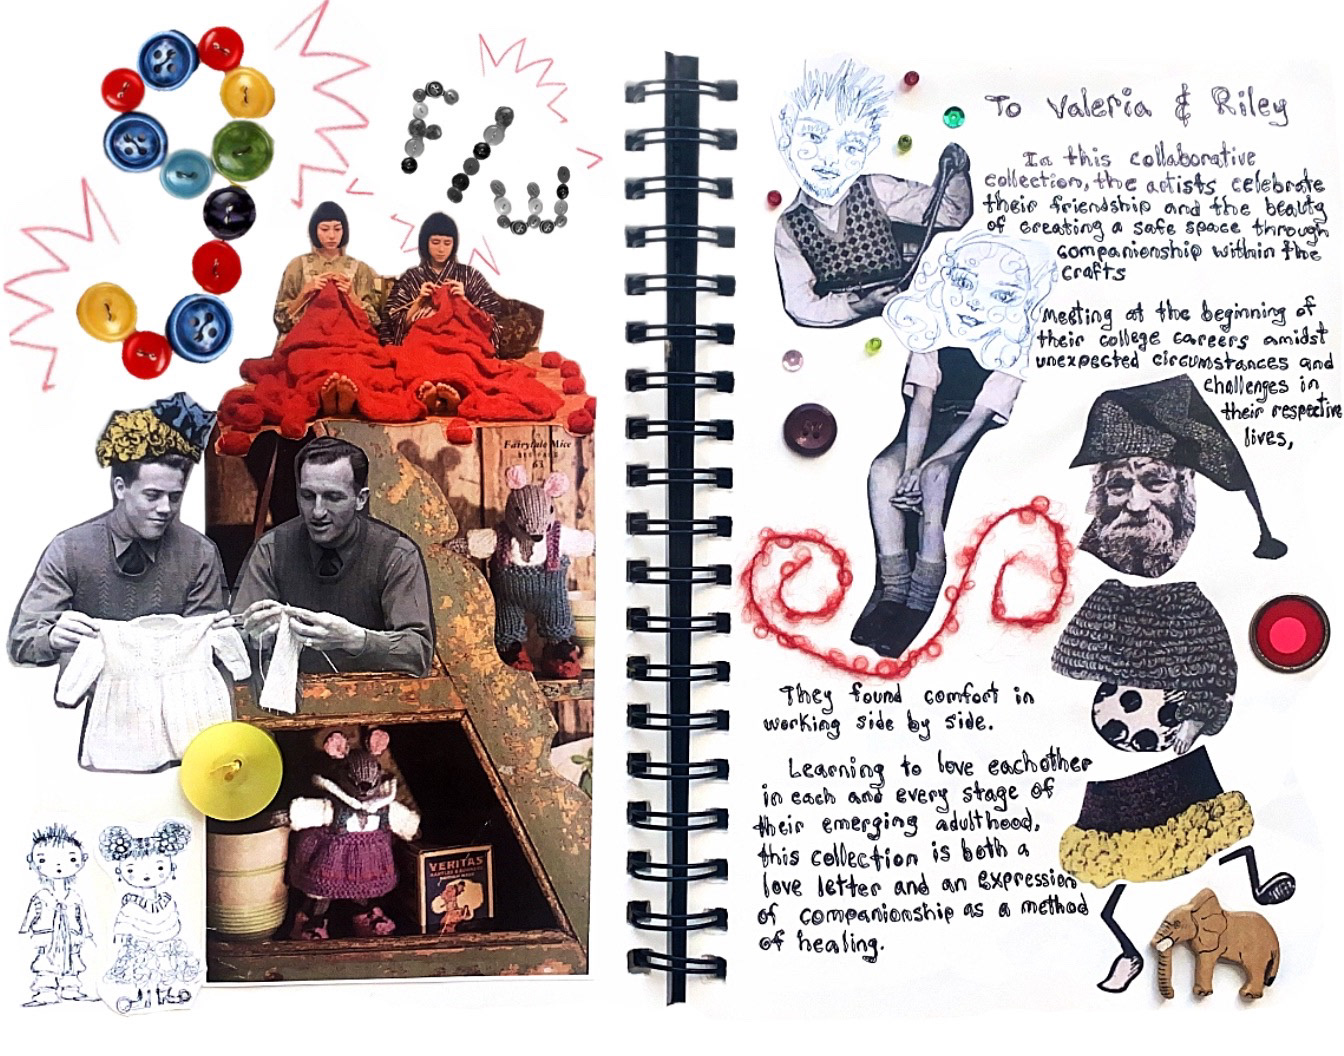 Flu
Fairytale Mice
VERITAS
ditto
To Valeria & Riley
In this collaborative
collection, the artists celebrate
their friendship and the beauty
of creating a safe space through
companionship within the
crafts
Meeting at the beginning of
their college careers amidst
unexpected circumstances and
challenges in
their respective
lives,
They found comfort in
working side by side.
Learning to love eachother
in each and every stage of
their emerging adulthood,
this collection is both a
love letter and an expression
of companionship as a method
of healing.